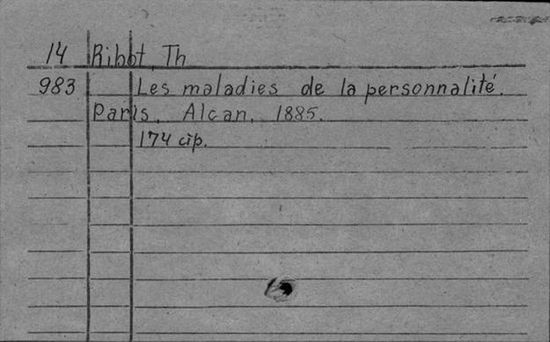 14 Ribot, Th
983 Les maladies de la personnalité.
Paris, Alcan, 1885.
174 стр.